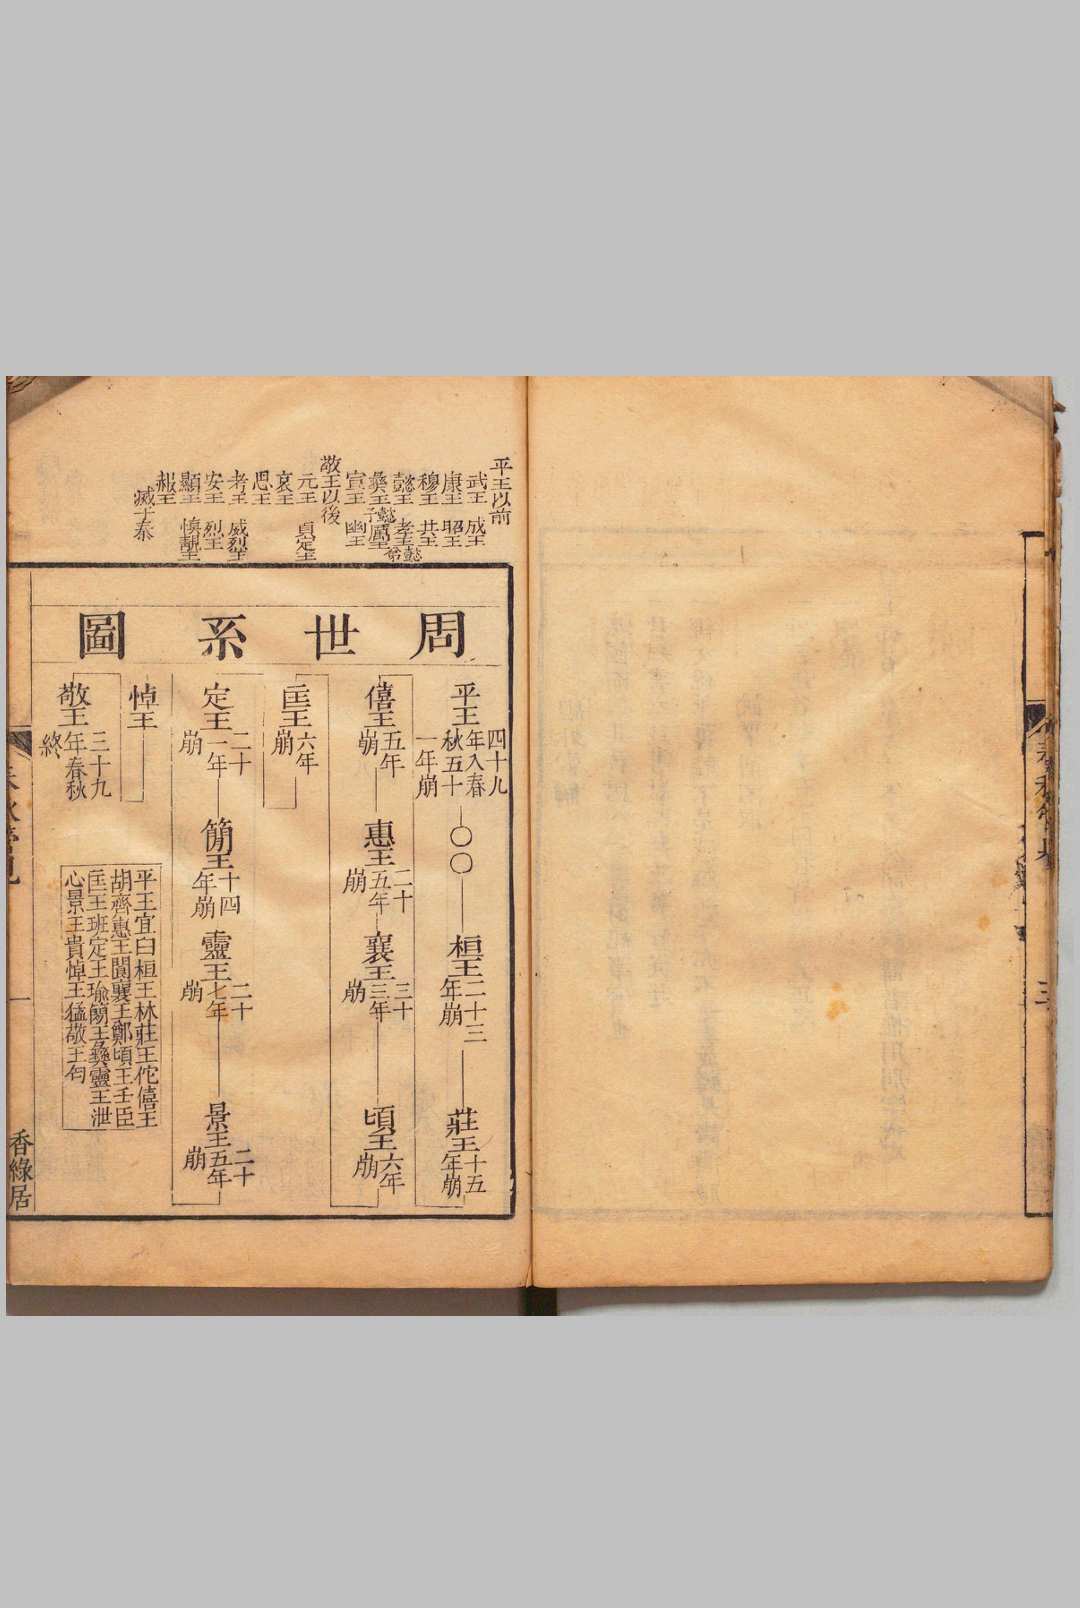 平王以前
武王 成王
康王 昭王
穆王 共王
懿王 孝王懿弟
彝王懿子 厲王
宣王 幽王
敬王以後
元王 貞定王
哀王
思王
考王 威烈王
安王 烈王
顯王 慎靚王
赧王
滅于秦
周世系圖
平王四十九年入春秋五十一年崩
〇〇
桓王二十三年崩
莊王十五年崩
僖王五年崩
惠王二十五年崩
襄王三十三年崩
頃王六年崩
匡王六年崩
定王二十一年崩
簡王十四年崩
靈王二十七年崩
景王二十五年崩
悼王
敬王三十九年春秋終
平王宜臼桓王林莊王佗僖王
胡齊惠王閬襄王鄭頃王壬臣
匡王班定王瑜簡王彝靈王泄
心景王貴悼王猛敬王匄
一
香綠居
三